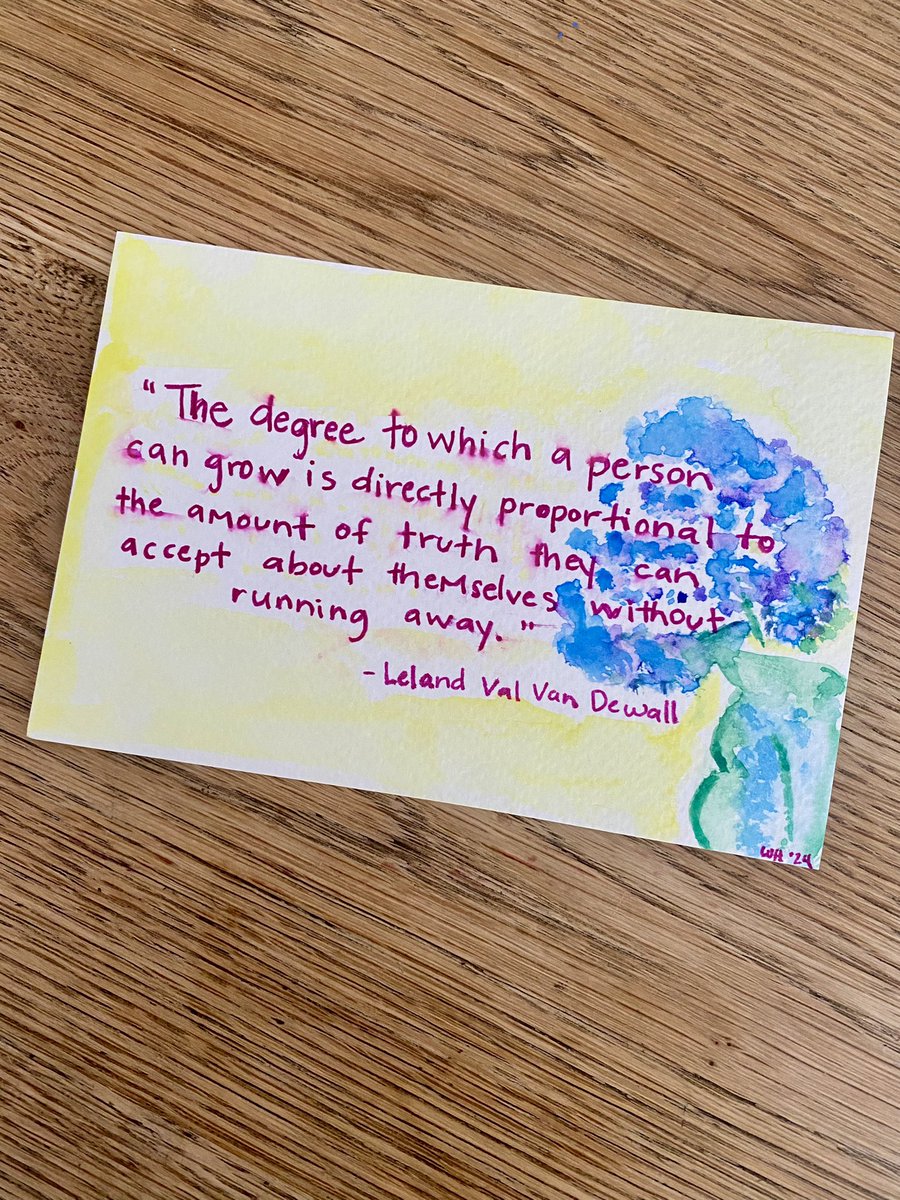 "The degree to which a person
can grow is directly proportional to
the amount of truth they can
accept about themselves without
running away."
- Leland Val Van Dewall
WH '24